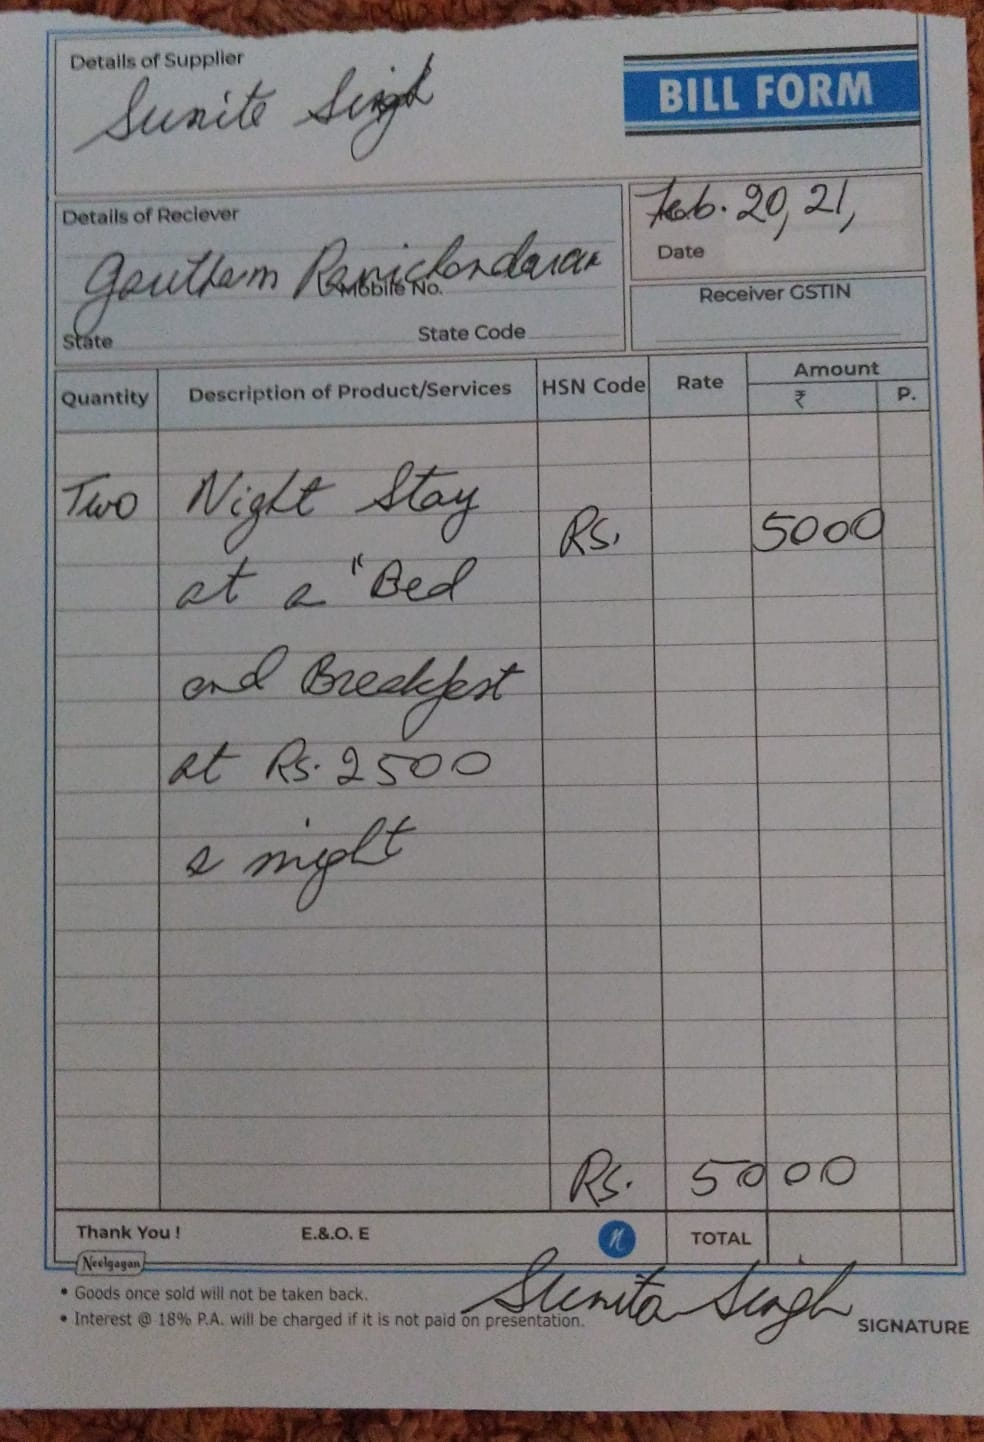 Details of Supplier
Sunita Singh
BILL FORM
Details of Reciever
Feb. 20, 21,
Date
Gautham Ravichandaran
Mobile No.
Receiver GSTIN
State State Code
Quantity Description of Product/Services HSN Code Rate Amount
₹ P.
Two Night Stay
Rs. 5000
at a "Bed
and Breakfast
at Rs. 2500
a night
Rs. 5000
Thank You ! E.&.O. E n TOTAL
Neelgagan
• Goods once sold will not be taken back.
• Interest @ 18% P.A. will be charged if it is not paid on presentation.
Sunita Singh
SIGNATURE